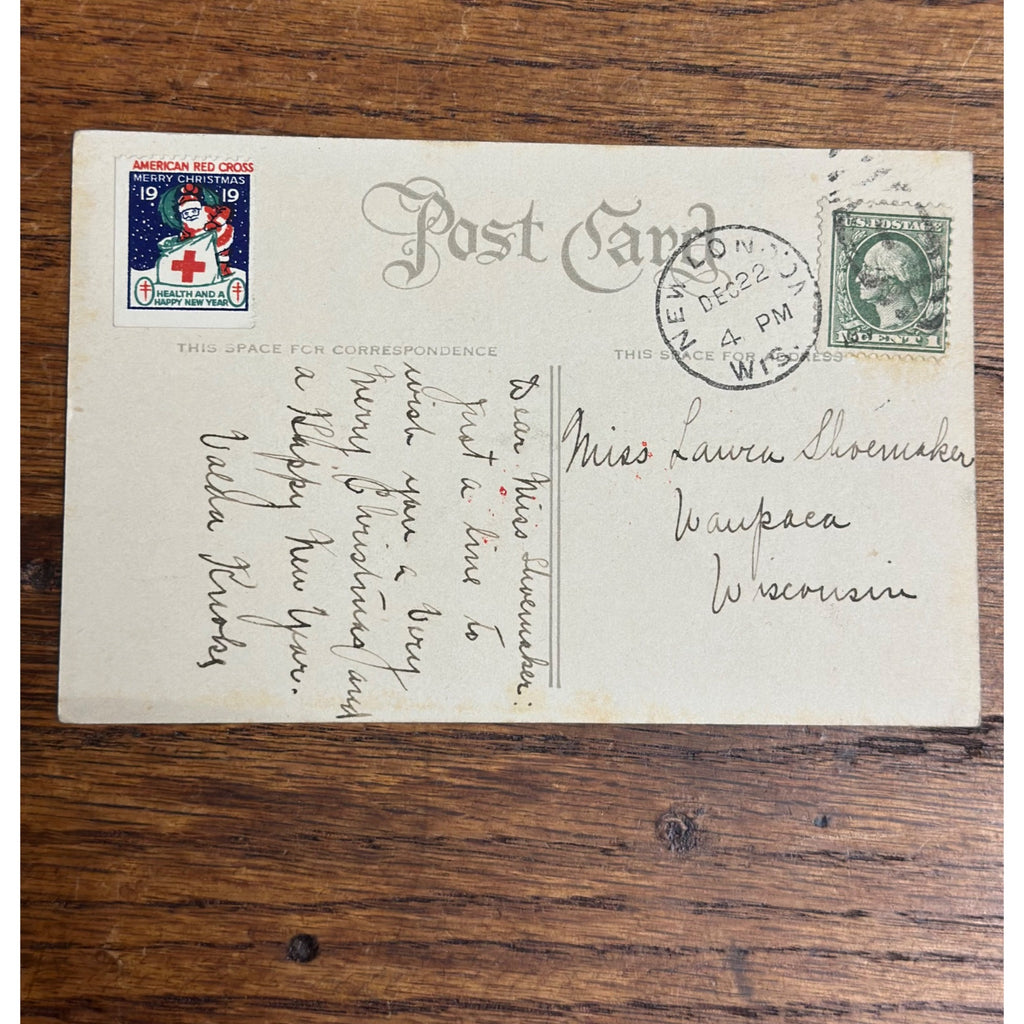 AMERICAN RED CROSS
MERRY CHRISTMAS
19 19
HEALTH AND A
HAPPY NEW YEAR
Post Card
NEW LONDON
DEC 22
4 PM
WIS.
U.S. POSTAGE
1 CENT 1
THIS SPACE FOR CORRESPONDENCE
THIS SPACE FOR ADDRESS
Dear Miss Shoemaker:
Just a line to
wish you a Very
Merry Christmas and
a Happy New Year.
Valda
Miss Laura Shoemaker
Waupaca
Wisconsin